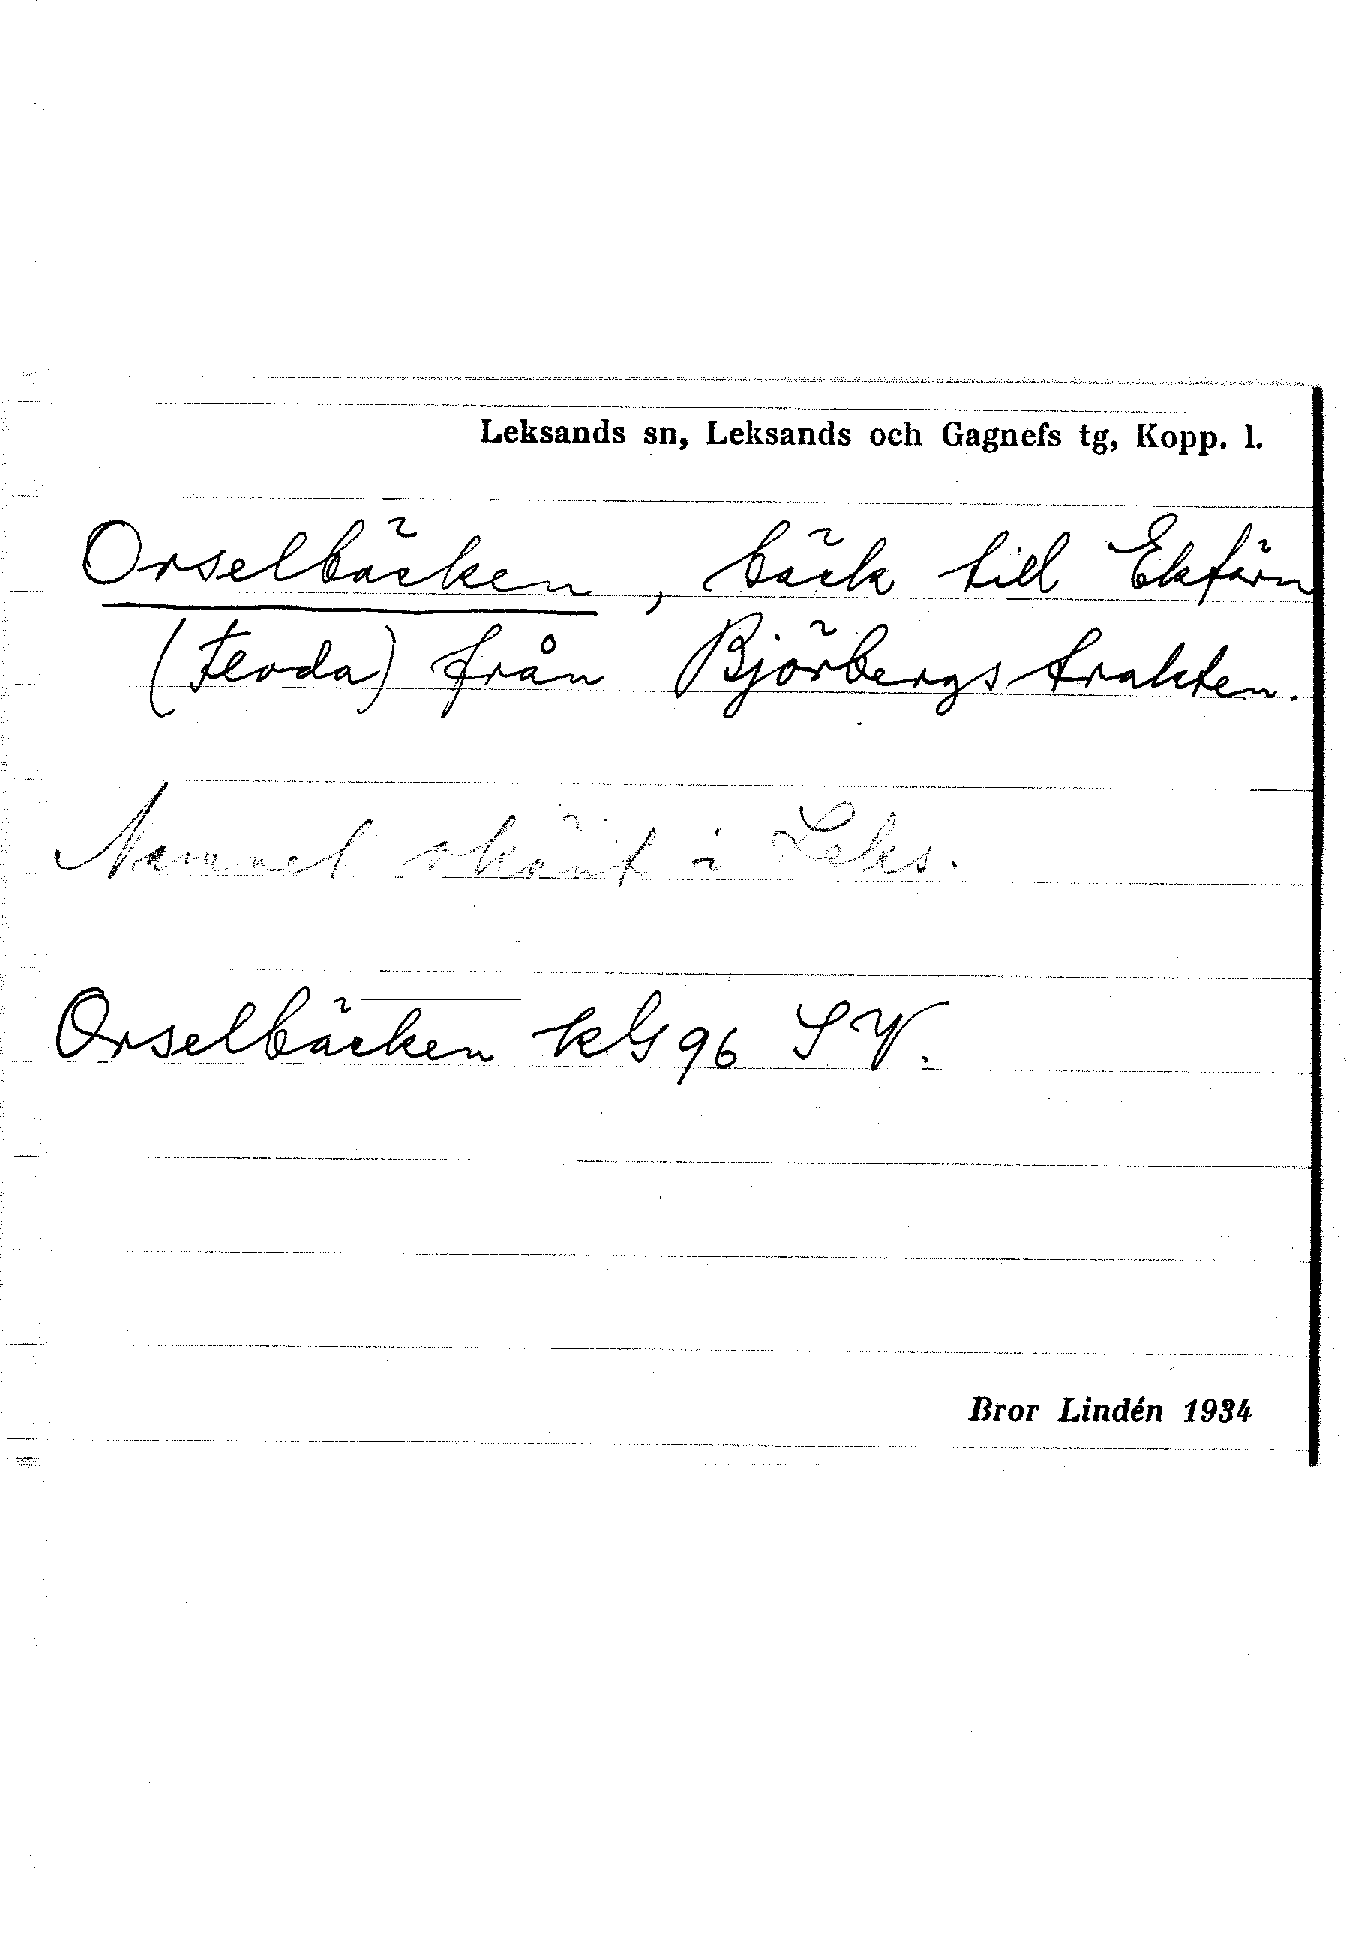 Leksands sn, Leksands och Gagnefs tg, Kopp. l.
Orselbäcken, bäck till Ektärn
(Floda) från Björbergstrakten.
Namnet okänt i Leks.
Orselbäcken kG 96 SV.
Bror Lindén 1934